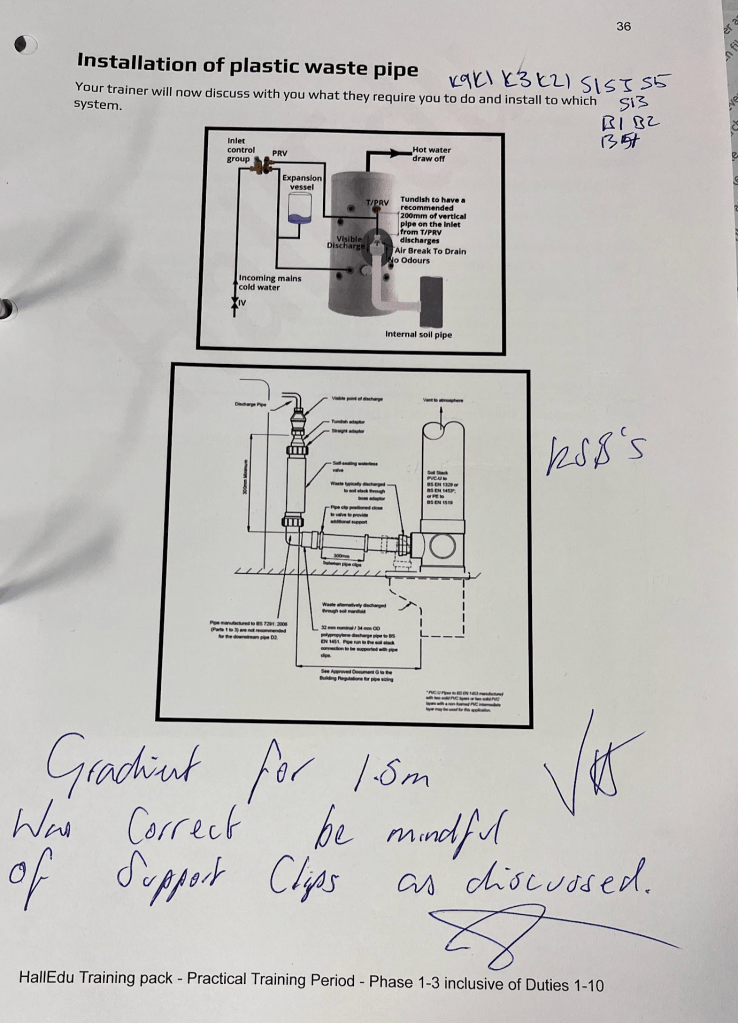 36
Installation of plastic waste pipe
K9K1 K3 K21 S15I S5
Your trainer will now discuss with you what they require you to do and install to which
S13
system.
B1 B2
Inlet
control
group
PRV
Hot water
draw off
Expansion
vessel
T/PRV
Tundish to have a
recommended
200mm of vertical
pipe on the inlet
from T/PRV
discharges
Visible
Discharge
Air Break To Drain
No Odours
Incoming mains
cold water
IV
Internal soil pipe
Discharge Pipe
Visible point of discharge
Vent to atmosphere
Tundish adaptor
Straight adaptor
300mm Minimum
Self-sealing waterless
valve
Waste typically discharged
to soil stack through
boss adaptor
Soil Stack
PVC-U to
BS EN 1329 or
BS EN 1453*,
or PE to
BS EN 1519
Pipe clip positioned close
to valve to provide
additional support
500mm
between pipe clips
Waste alternatively discharged
through soil manifold
Pipe manufactured to BS 7291: 2006
(Parts 1 to 3) are not recommended
for the downstream pipe D2.
32 mm nominal / 34 mm OD
polypropylene discharge pipe to BS
EN 1451. Pipe run to the soil stack
connection to be supported with pipe
clips.
See Approved Document G to the
Building Regulations for pipe sizing
*PVC-U Pipes to BS EN 1453 manufactured
with two solid PVC layers or two solid PVC
layers with a non-foamed PVC intermediate
layer may be used for this application.
KSB's
Gradient for 1.5m
Was Correct be mindful
of Support Clips as discussed.
HallEdu Training pack - Practical Training Period - Phase 1-3 inclusive of Duties 1-10